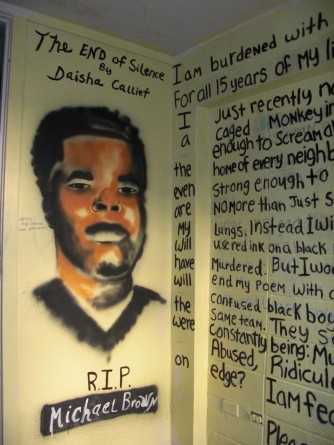 The END of Silence
By
Daisha Calliet
R.I.P.
Michael Brown
I am burdened with
For all 15 years of my
I
a
the
even
are
My
will
have
will
the
were
on
Just recently
caged Monkey in
enough to Scream
home of every
strong enough to
NO MORE than Just
lungs, Instead I
used ink on a black
Murdered. But I
end my Poem with
confused black
Same team. They
Constantly being:
Abused,
edge?
I am